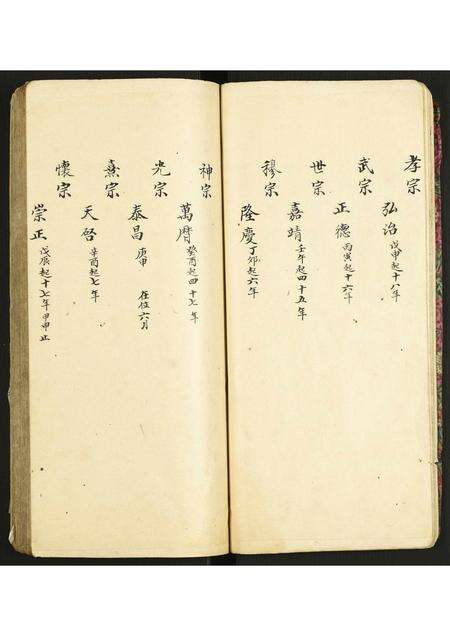 孝宗
弘治 戊申起十八年
武宗
正德 丙寅起十六年
世宗
嘉靖 壬午起四十五年
穆宗
隆慶 丁卯起六年
神宗
萬曆 癸酉起四十七年
光宗
泰昌 庚申 在位六月
熹宗
天啓 辛酉起七年
懷宗
崇正 戊辰起十七年甲申止